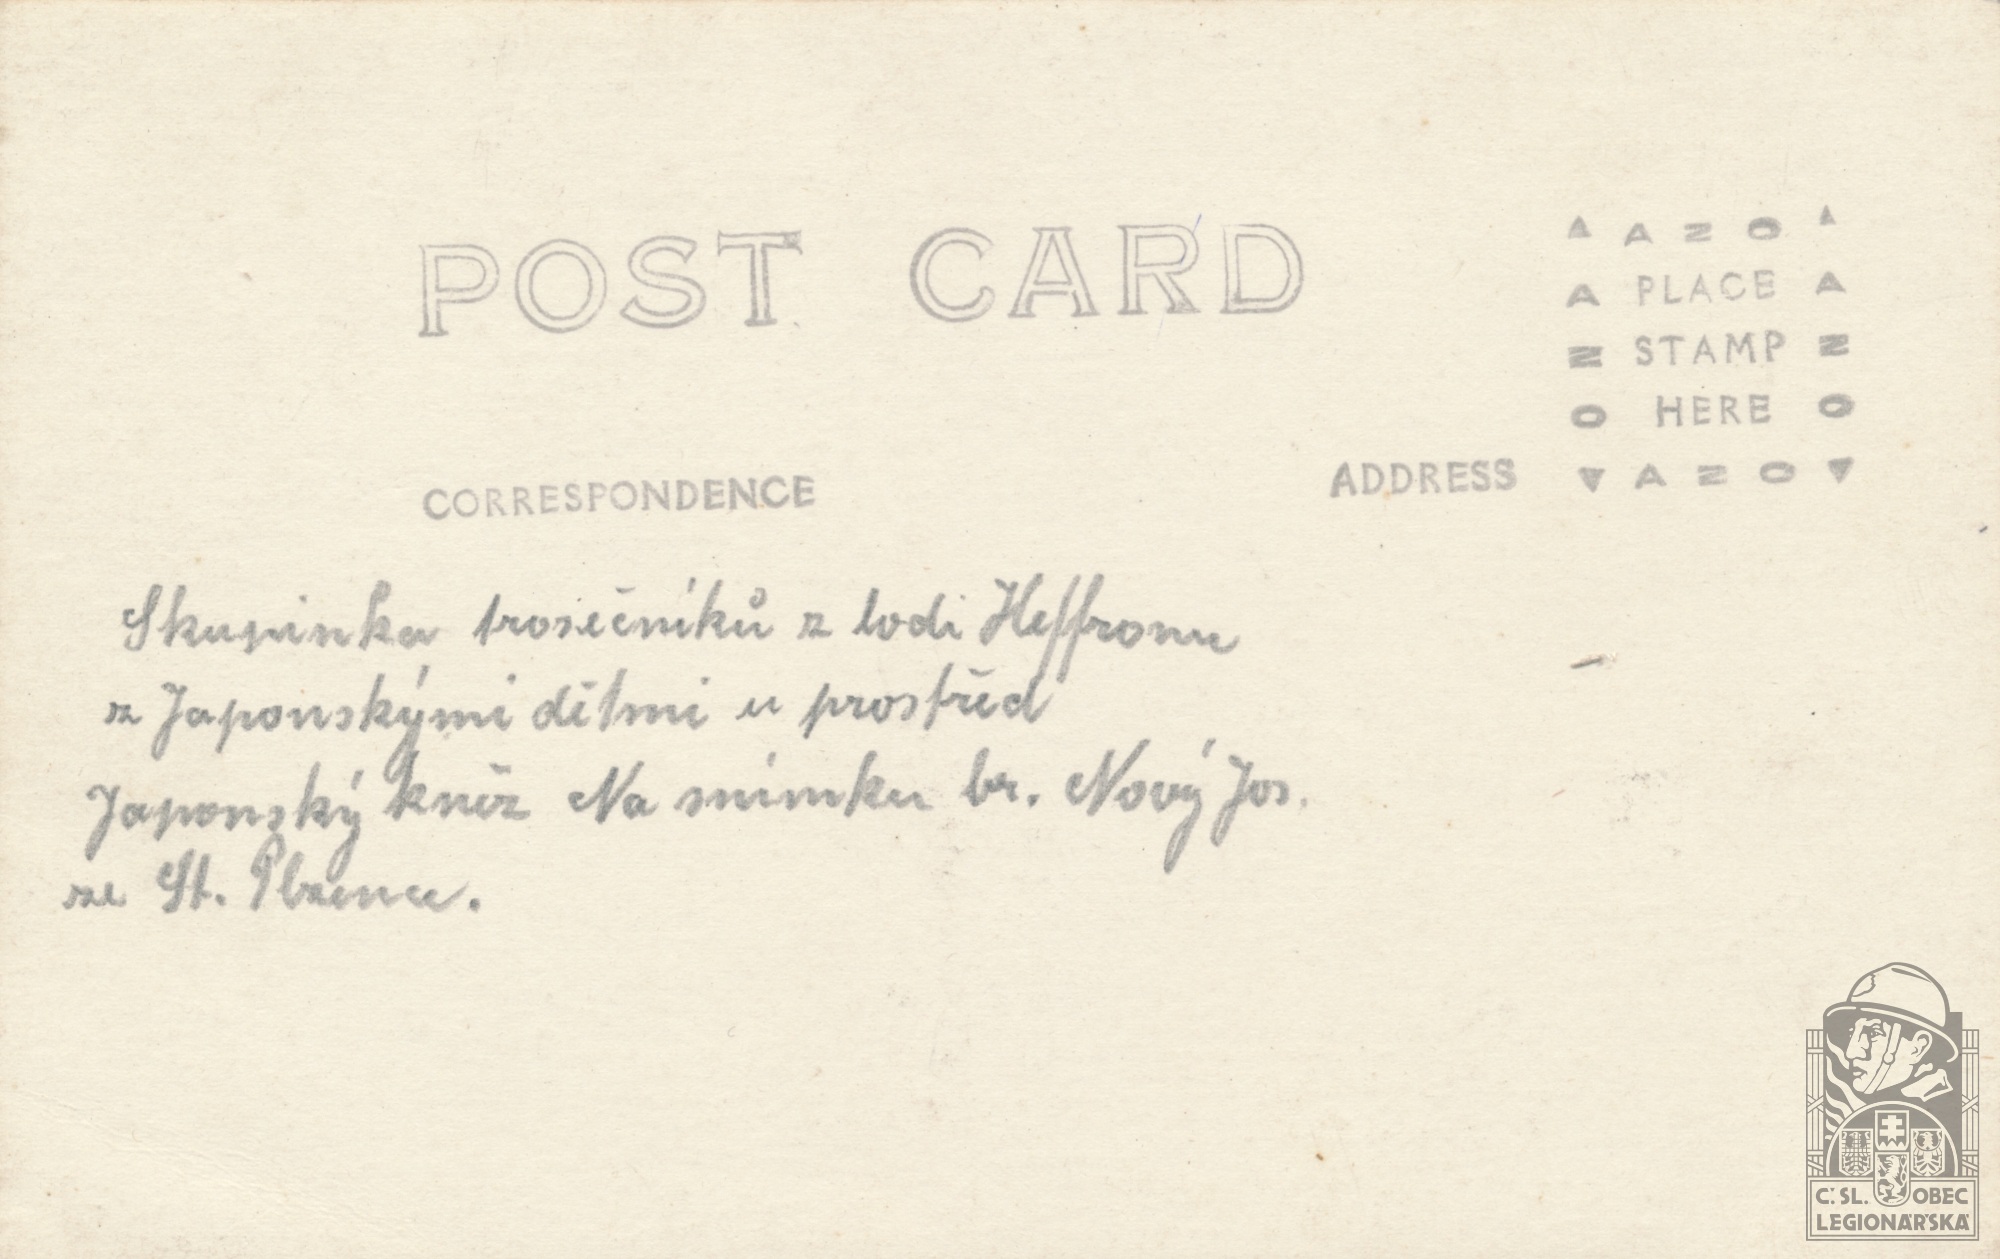 POST CARD
AZO
A PLACE A
N STAMP N
O HERE O
AZO
CORRESPONDENCE
ADDRESS
Skupinka trosečníků z lodi Heffronu
z Japonskými dětmi u prostřed
Japonský kněz Na snímku br. Nový Jos.
ze St. Plzence.
Č.SL. OBEC
LEGIONÁŘSKÁ